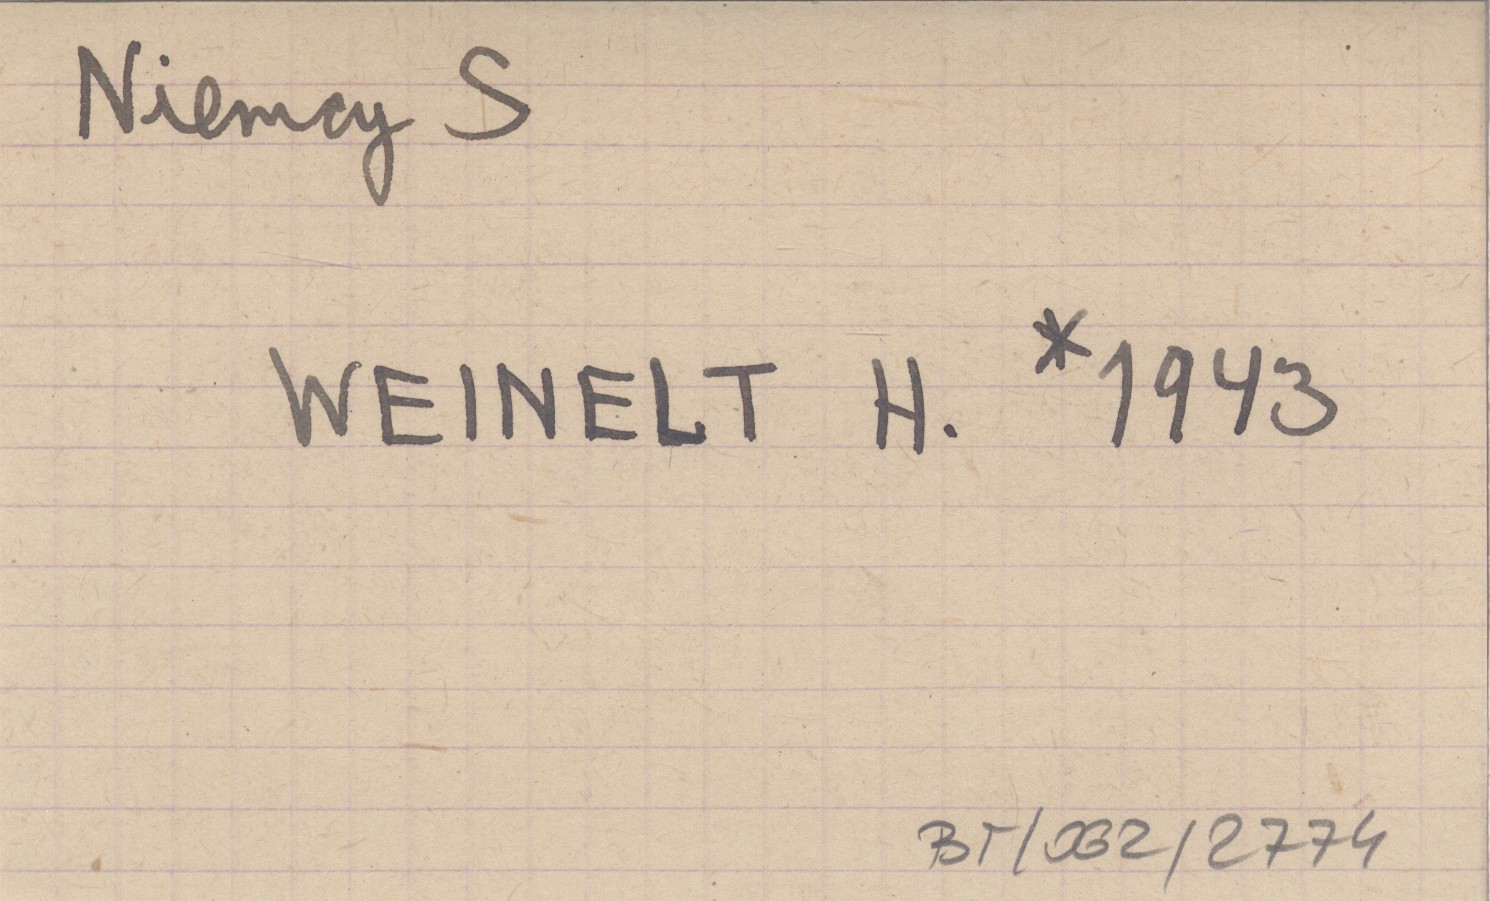 Niemcy S
WEINELT H. *1943
BT/032/2774